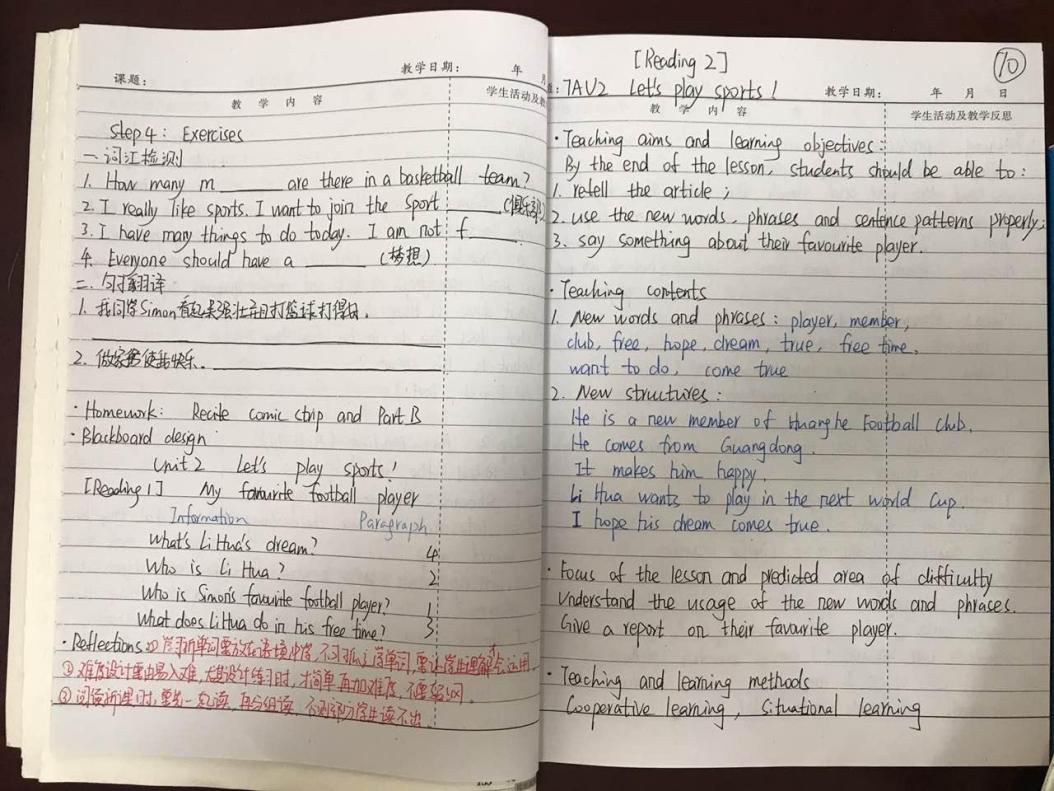 课题：
教学日期： 年 月
教 学 内 容
学生活动及教
Step 4: Exercises
一.词汇检测
1. How many m______ are there in a basketball team?
2. I really like sports. I want to join the sport ______(俱乐部).
3. I have many things to do today. I am not f______.
4. Everyone should have a ______ (梦想)
二.句子翻译
1. 我同学Simon看起来强壮并且打篮球打得好.
2. 做家务使我快乐.
· Homework: Recite comic strip and Part B
· Blackboard design
Unit 2 Let's play sports!
[Reading 1] My favourite football player
Information Paragraph
What's Li Hua's dream? 4
Who is Li Hua? 2
Who is Simon's favourite football player? 1
What does Li Hua do in his free time? 3
· Reflections: ① 学习新单词要放在语境中学, 不可孤立学单词, 要让学生理解才会运用.
② 难度设计要由易入难, 设计练习时, 简单再加难度, 不要
③ 词 时, 要先一起读, 再分组读, 学生读不出.
[Reading 2]
10
7AU2 Let's play sports!
教学日期： 年 月 日
教 学 内 容
学生活动及教学反思
· Teaching aims and learning objectives:
By the end of the lesson, students should be able to:
1. retell the article;
2. use the new words, phrases and sentence patterns properly;
3. say something about their favourite player.
· Teaching contents
1. New words and phrases: player, member,
club, free, hope, dream, true, free time,
want to do, come true
2. New structures:
He is a new member of Huanghe Football Club.
He comes from Guangdong.
It makes him happy.
Li Hua wants to play in the next world Cup.
I hope his dream comes true.
· Focus of the lesson and predicted area of difficulty
Understand the usage of the new words and phrases.
Give a report on their favourite player.
· Teaching and learning methods
Cooperative learning, Situational learning